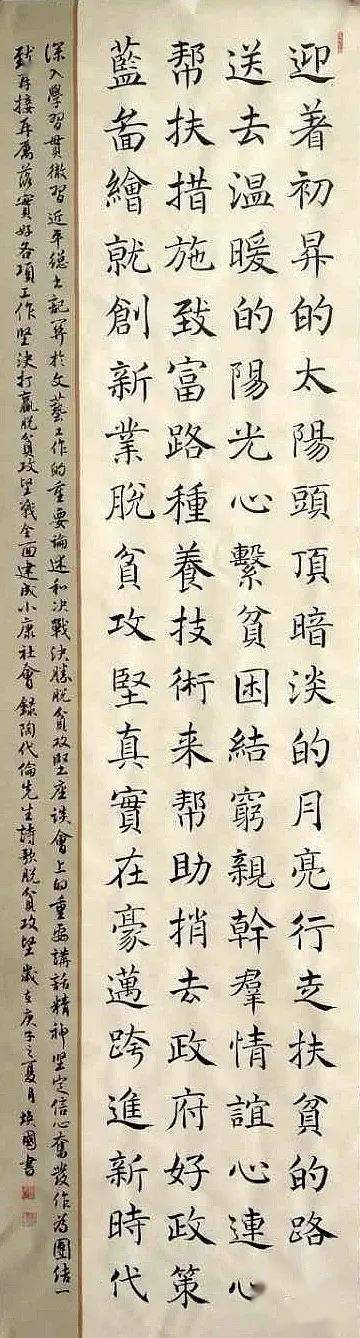 迎着初昇的太陽頭頂暗淡的月亮行走扶貧的路
送去温暖的陽光心繫貧困結窮親幹羣情誼心連心
帮扶措施致富路種養技術来帮助捎去政府好政策
藍啚繪就創新業脱貧攻堅真實在豪邁跨進新時代
深入學習貫徹習近平總书記関於文藝工作的重要論述和决戰决勝脱貧攻堅座談會上的重要講話精神坚定信心奮發作為團结一
致再接再厲落實好各項工作坚决打贏脱貧攻坚戰全面建成小康社會 錄陶代倫先生詩歌脱貧攻坚 歲在庚子之夏月 國書